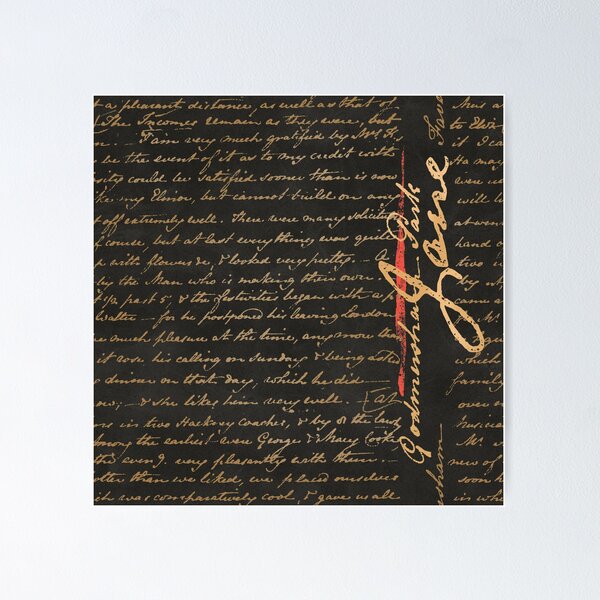 t a pleasant distance, as well as that of
The Incomes remain as they were, but
I am very much gratified by Mrs K.
be the event of it as to my credit with
sity could be satisfied sooner than is now
ke my Elinor, but cannot build on any
off extremely well. There were many solicitu
f course, but at last everything was quite
p with flowers &c, & looked very pretty. — A
by the Man who is making their own
½ past 5, & the festivities began with a p
Walter — for he postpond his leaving London
much pleasure at the time, any more than
it rose his calling on Sunday & being asked
dinner on that day, which he did
ow; — & she likes him very well. At
rs in two Hackney coaches, & by the last
Among the earliest were George & Mary Cooke
even I. very pleasantly with them.—
tter than we liked, we placed ourselves
ich was comparatively cool, & gave us all
Godmersham Park
Jane
sham
to Eliz
it I ca
Ha may
were u
will b
at wan
hand o
two
by
came a
Mr.
family
over
musica
Mr. w
new of
soon i
in wh